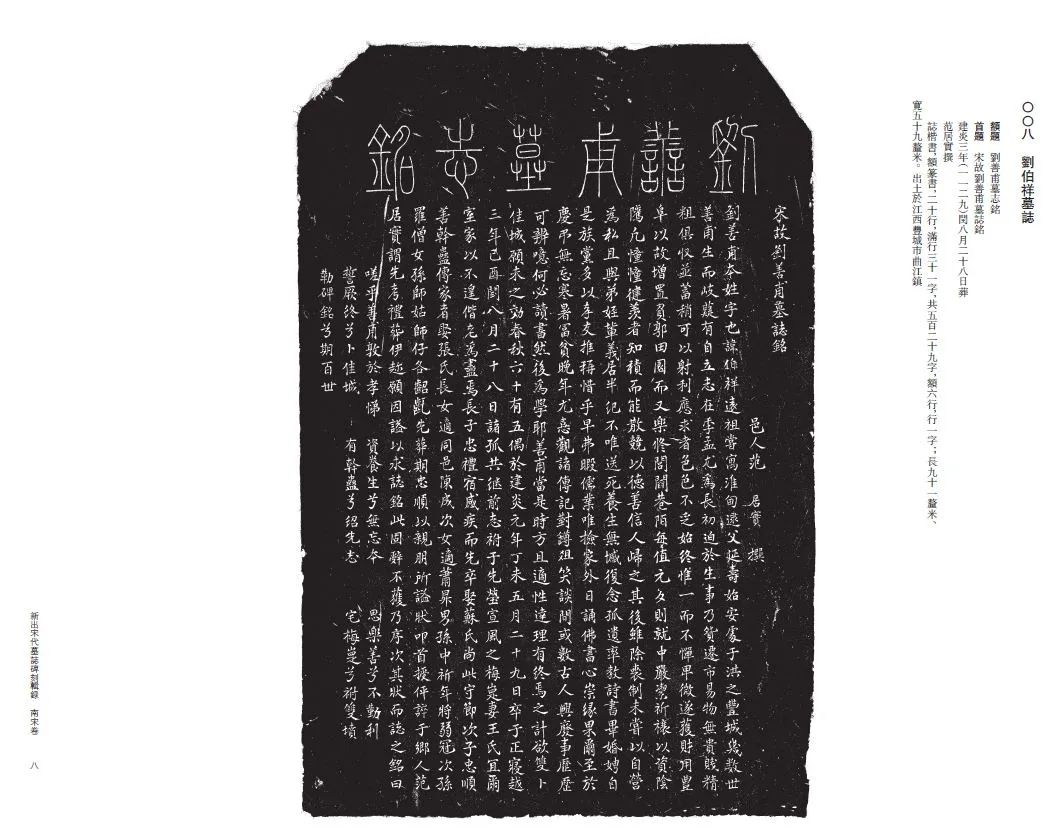 〇〇八　劉伯祥墓誌
額題　劉善甫墓志銘
首題　宋故劉善甫墓誌銘
建炎三年(一一二九)閏八月二十八日葬
范居實撰
誌楷書,額篆書,二十行,滿行三十一字,共五百二十九字,額六行,行一字;長九十一釐米、
寬五十九釐米。出土於江西豐城市曲江鎮
劉善甫墓志銘
宋故劉善甫墓誌銘
邑人范　居實　撰
劉善甫本姓字也諱伯祥遠祖嘗寓淮甸逮父延壽始安處于洪之豐城幾數世
善甫生而岐嶷有自立志在季孟尤為長初迫於生事乃貿遷市易物無貴賤精
粗俱收並蓄稍可以射利應求者色色不乏始終惟一而不憚卑微遂獲財用豐
阜以故增置負郭田園而又樂修閭閈巷陌每值元夕則就中嚴禦祈禳以資陰
隲凡憧憧徤羨者知積而能散競以德善信人歸之其後雖除喪制未嘗以自營
為私且與弟姪輩義居半紀不唯送死養生無憾復念孤遺率教詩書畢婚娉自
是族黨多以孝友推稱惜乎早弗暇儒業唯撿家外日誦佛書心崇緣果爾至於
慶弔無忘寒暑富貧晚年尤憙觀諸傳記對鐏俎笑談間或數古人興廢事歷歷
可辨噫何必讀書然後為學耶善甫當是時方且適性達理有終焉之計欲雙卜
佳城願未之効春秋六十有五偶於建炎元年丁未五月二十九日卒于正寢越
三年己酉閏八月二十八日諸孤共継前志祔于先塋宣風之梅嵏妻王氏宜爾
室家以不遑偕老為盡焉長子忠禮宿感疾而先卒娶蘇氏尚此守節次子忠順
善幹蠱傳家者娶張氏長女適同邑陳成次女適蕭杲男孫中祈年將弱冠次孫
羅僧女孫師姑師仔各齠齔先葬期忠順以親朋所謚狀叩首授伻誶于鄉人范
居實謂先考禮葬伊邇願因謚以求誌銘此固辭不獲乃序次其狀而誌之銘曰
嗟乎善甫敦於孝悌　資養生兮無忘本　思樂善兮不勤利
誓厥終兮卜佳城　有幹蠱兮紹先志　宅梅嵏兮祔雙墳
勒碑銘兮期百世
新出宋代墓誌碑刻輯錄　南宋卷　八